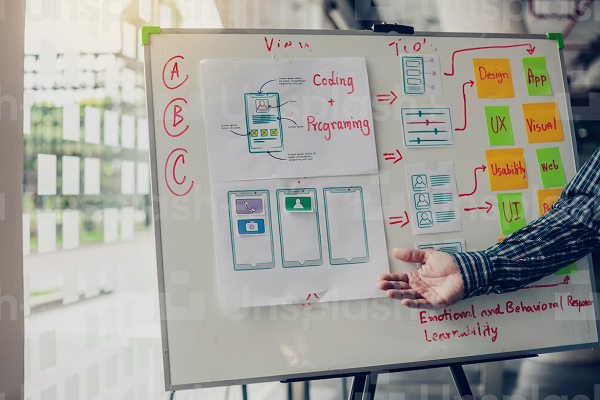 A
B
C
Coding
+
Programing
Design
App
UX
Visual
Usability
Web
UI
Emotional and Behavioral Response
Learnability